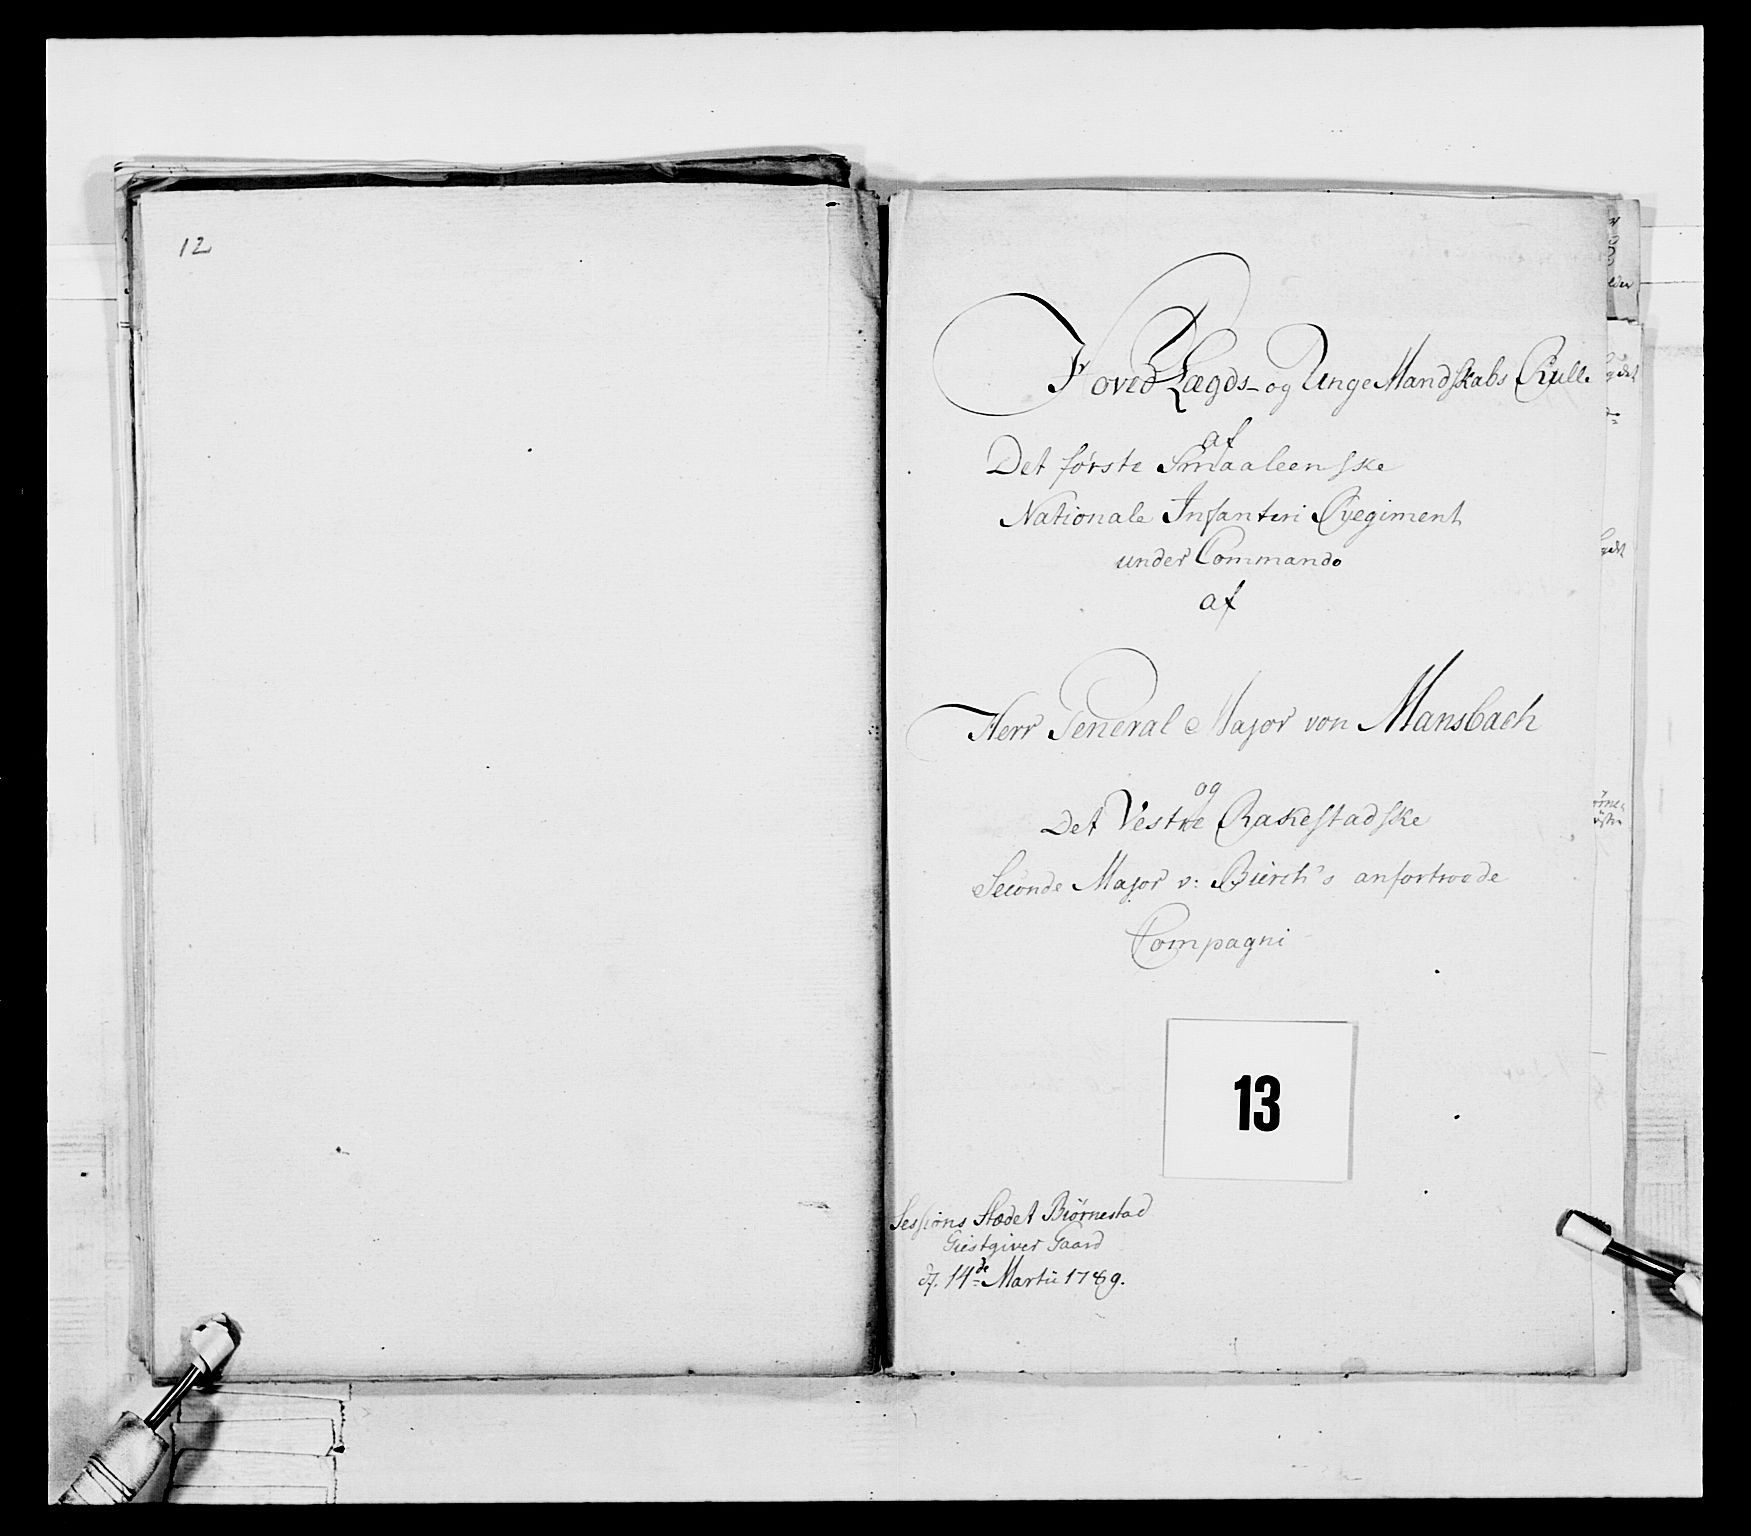 12
Hoved Lægds- og Unge Mandskabs Rulle
af
Det første Smaaleenske
Nationale Infanteri Regiment
under Commando
af
Herr General Major von Mansbach
og
Det Vestre Rakestadske
Seconde Major v: Bierch's anfortroede
Compagni
13
Sessions Stædet Biørnestad
Giestgiver Gaard
d. 14de Martii 1789.